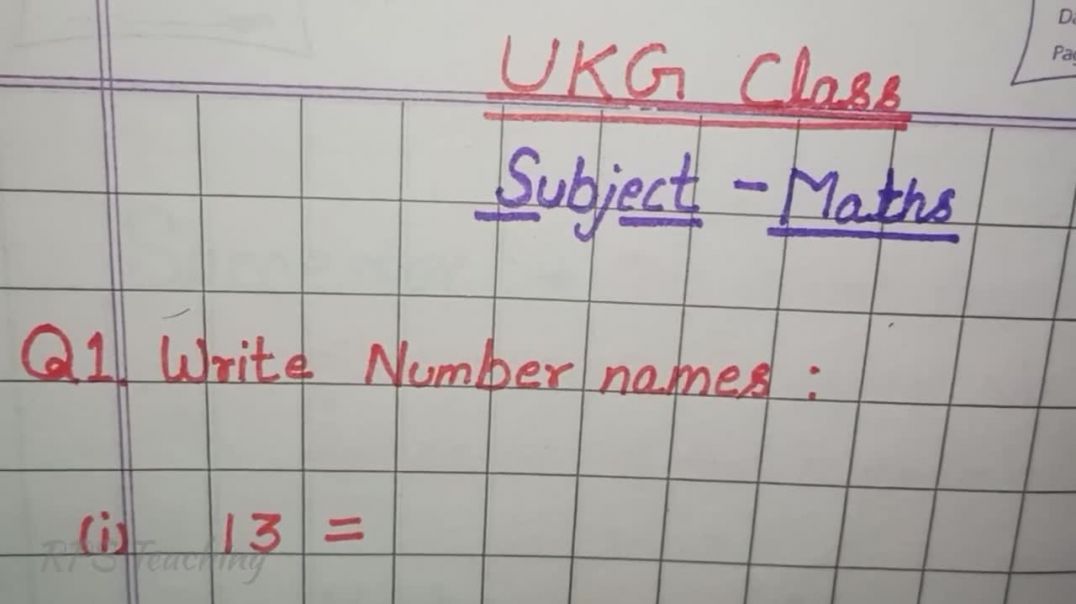 UKG Class
Subject - Maths
Q1. Write Number names :
(i) 13 =
RPS Teaching